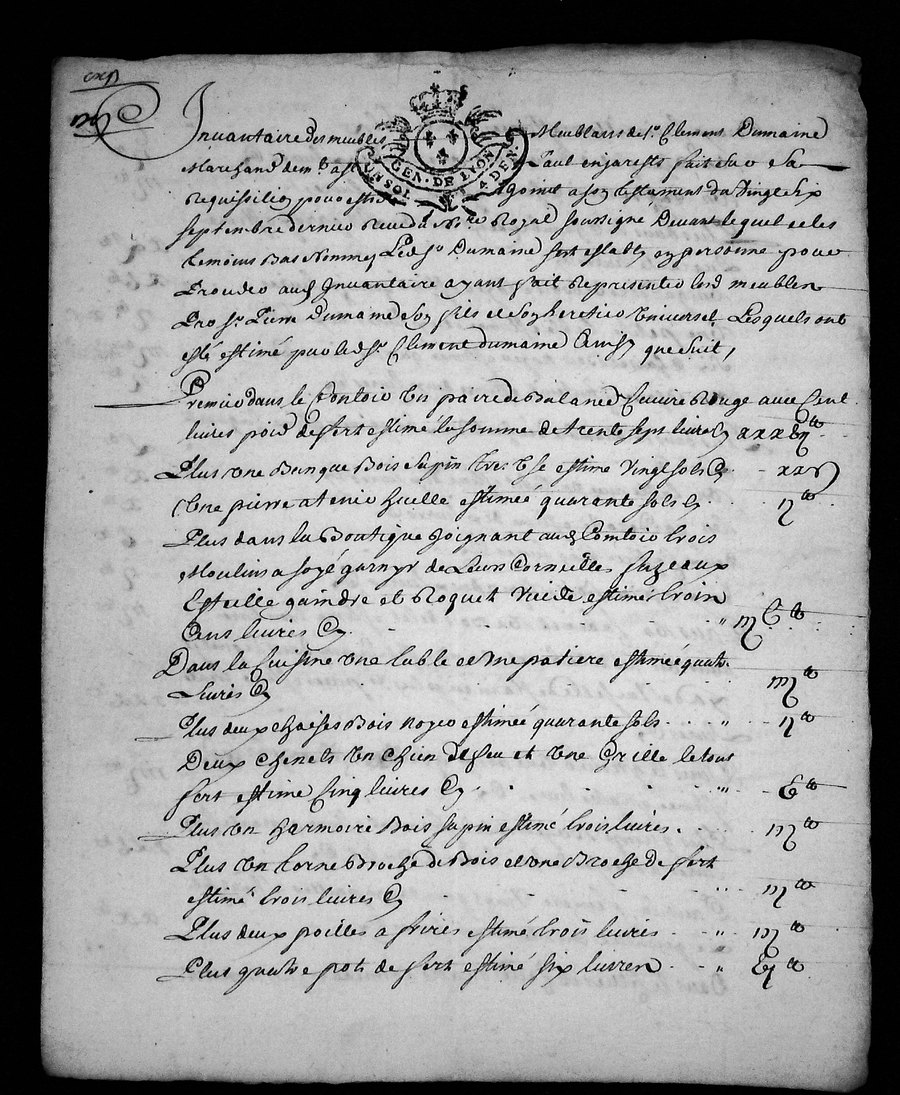 exp
Inuantaire des meubles Meublans de sr. Clement Dumaine
GEN. DE LYON
UN SOL 4 DEN
Marchand de St. Paul en jarests fait sur sa
Requisition pour estre a son testament du vingt six
septembre dernier Receu du Nore. Royal soussigné Devant lequel et les
temoins Bas Nommes Led sr. Dumaine sest establi en personne pour
proceder aud Inuantaire ayant fait Representer lesd meubles
Par sr. Pierre Dumaine son fils et son heretier vniuersel Lesquels ont
esté estimé par led sr. Clement dumaine Ainsy que suit,
Premier dans le Contoir vn paire de Balance Cuivre Rouge auec Cent
liures poid de fert estimé la somme de trente sept liures Cy xxxvij tt
Plus vne Banque Bois sapin tres vse estime vingt sols Cy xx s
Vne pierre a tenir huille estimeé quarante sols Cy ij tt
Plus dans la Boutique Joignant aud Comtoir trois
Moulins a soyé garnyr de Leurs Corneilles fuzeaux
Estuelle guindre et Roquet vuide estimé trois
Cens liures Cy. iij C tt
Dans la Cuisine vne table et vne patiere estimeé quatr.
Liures Cy iiij tt
Plus deux chaises Bois noyer estimeé quarante sols ij tt
Deux chenets vn chien de feu et vne Grille le tout
fert estime Cinq liures Cy V tt
Plus vn harmoire Bois sapin estimé trois liures. iij tt
Plus vn torne Broche de Bois et vne Broche de fert
estimé trois liures Cy iij tt
Plus deux poilles a frires estimé trois liures iij tt
Plus quatre pots de fert estimé six liures vj tt